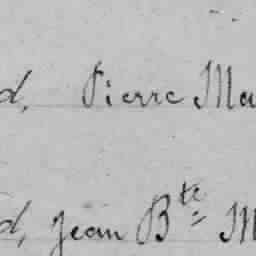 d, Pierre Ma
d, Jean Bte M